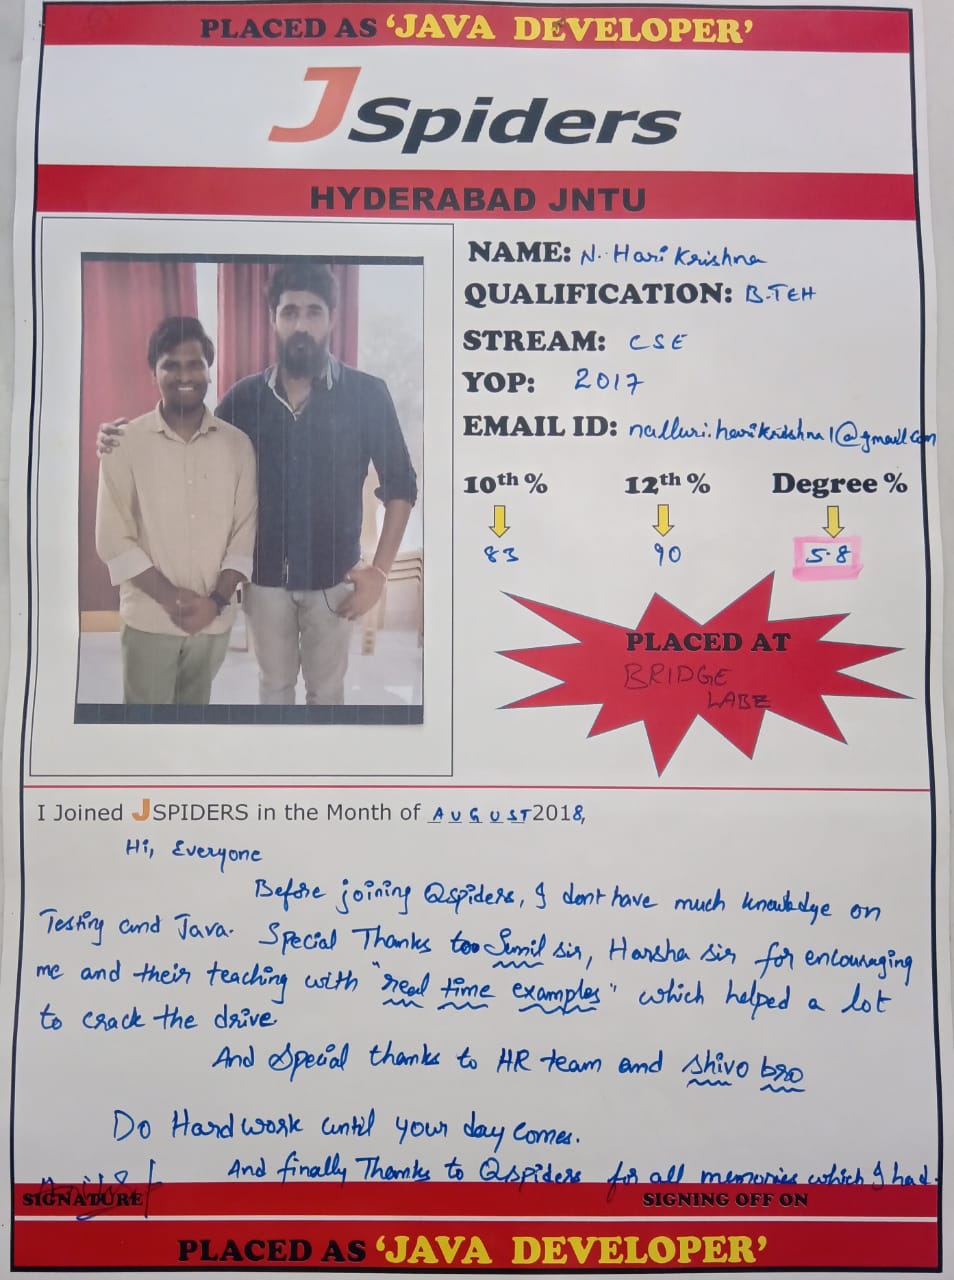 PLACED AS ‘JAVA DEVELOPER’
JSpiders
HYDERABAD JNTU
NAME: N. Hari Krishna
QUALIFICATION: B.TEH
STREAM: CSE
YOP: 2017
EMAIL ID: nalluri.harikrishna1@gmail.com
10th % 12th % Degree %
83 90 5.8
PLACED AT
BRIDGE
LABZ
I Joined JSPIDERS in the Month of AUGUST2018,
Hi, Everyone
Before joining Qspiders, I dont have much knowledge on
Testing and Java. Special Thanks too Sunil sir, Harsha sir for encouraging
me and their teaching with "real time examples" which helped a lot
to crack the drive
And Special thanks to HR team and Shivo bro
Do Hardwork until your day comes.
And finally Thanks to Qspiders for all memories which I had.
SIGNATURE SIGNING OFF ON
PLACED AS ‘JAVA DEVELOPER’